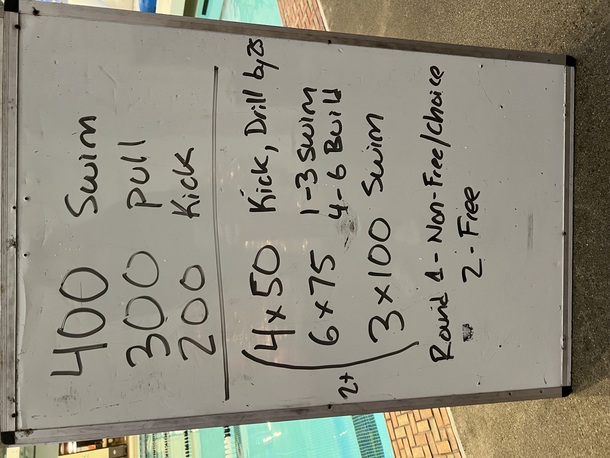 400 Swim
300 pull
200 Kick
2x
4x50 Kick, Drill by 25
6x75 1-3 Swim
4-6 Build
3x100 Swim
Round 1 - Non-Free/Choice
2 - Free